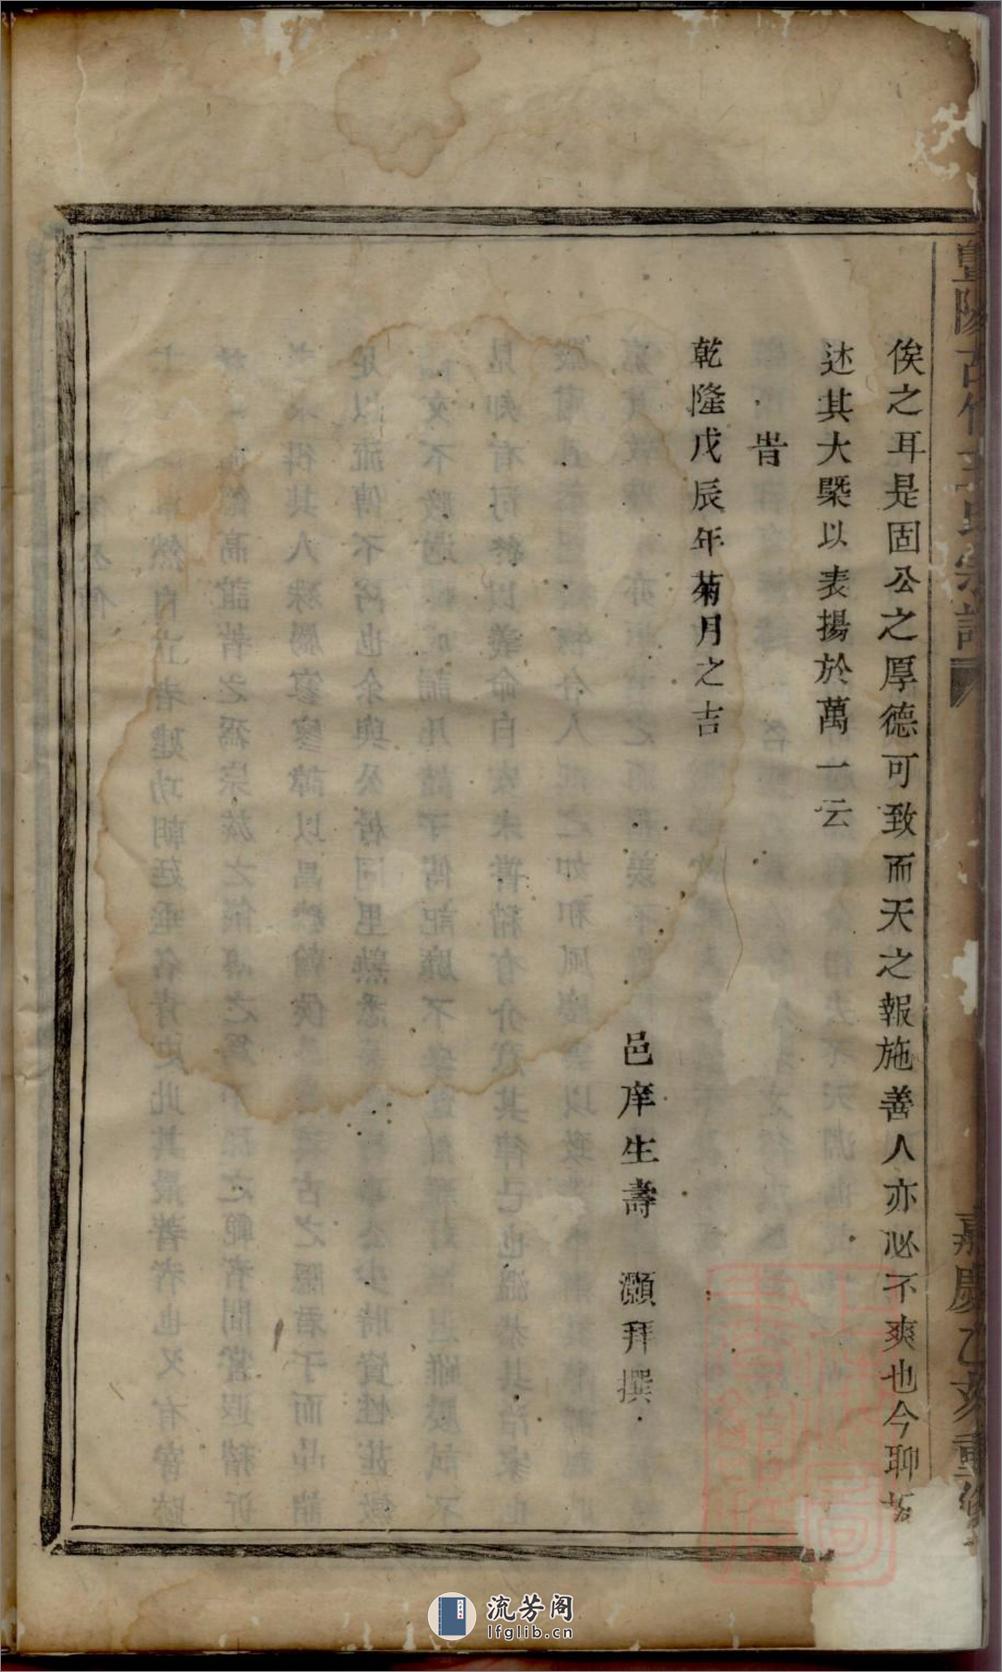 暨陽古竹王氏宗譜
嘉慶乙亥重修
俟之耳是固公之厚德可致而天之報施善人亦必不爽也今聊
述其大槩以表揚於萬一云
旹
乾隆戊辰年菊月之吉
邑庠生壽 灝拜撰
流芳阁
lfglib.cn